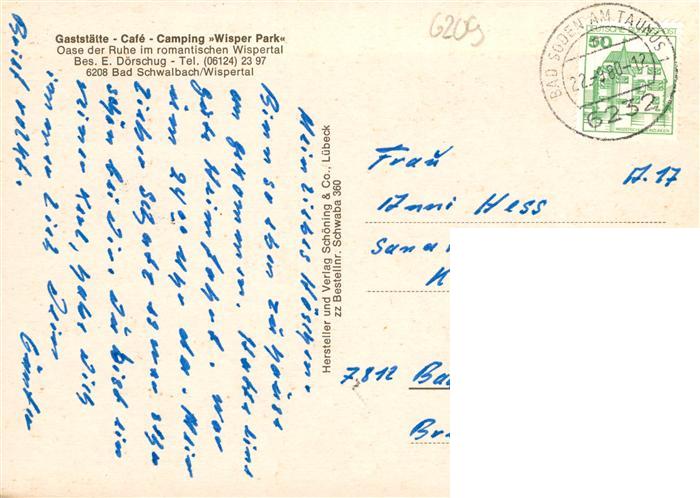 6209
Gaststätte - Café - Camping »Wisper Park«
Oase der Ruhe im romantischen Wispertal
Bes. E. Dörschug - Tel. (06124) 23 97
6208 Bad Schwalbach/Wispertal
BAD SODEN AM TAUNUS 1
22.-9.80-12
6232
50
DEUTSCHE BUNDESPOST
Mein liebes Häschen.
Binn so eben zu Hause
an gekommen. Hatte eine
gute Heimfahrt. war
um 24 Uhr da. Mein
lieber Schatz es war sehr
schön bei Dir. Du bist ein
primer Kerl, habe Dich
immer lieb Dein
Günter
Brief folgt.
Hersteller und Verlag Schöning & Co., Lübeck
zz Bestellnr. Schwaba 360
Frau
A.17
Anni Hess
7812 Bad